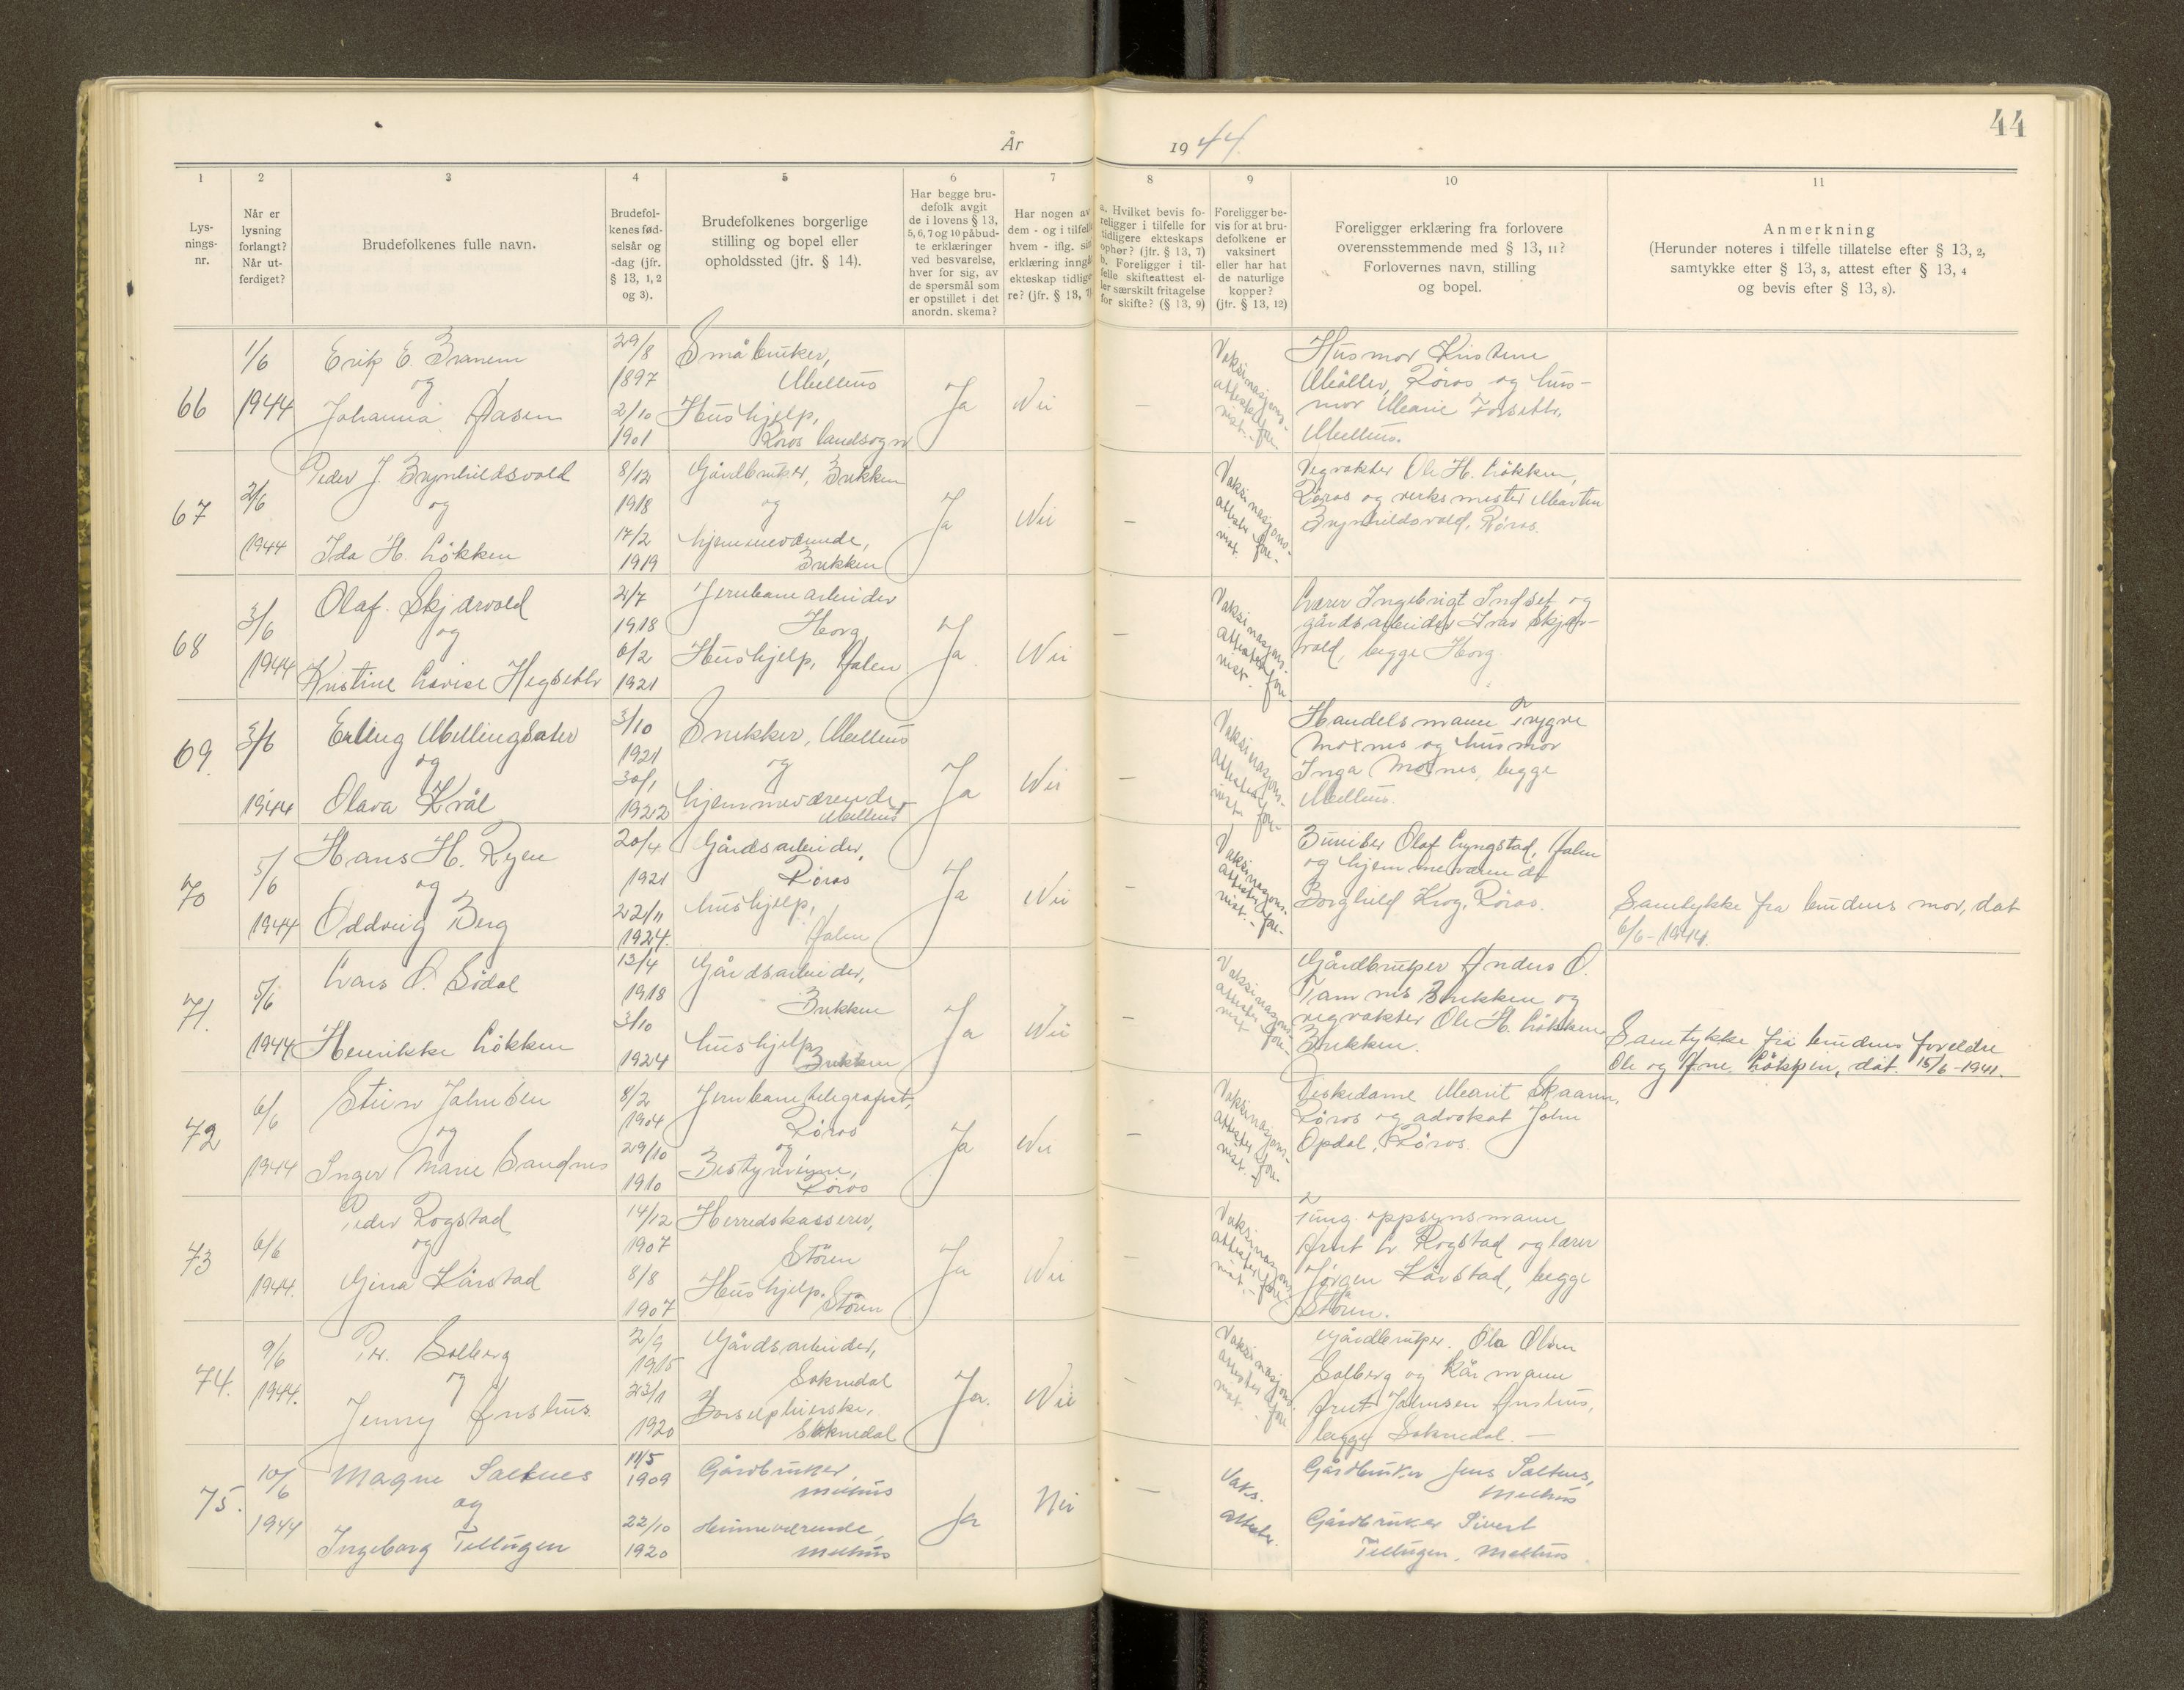 44
År 1944.
1 2 3 4 5 6 7 8 9 10 11
Lysnings-nr.
Når er lysning forlangt? Når utferdiget?
Brudefolkenes fulle navn.
Brudefolkenes fødselsår og -dag (jfr. § 13, 1, 2 og 3).
Brudefolkenes borgerlige stilling og bopel eller opholdssted (jfr. § 14).
Har begge brudefolk avgit de i lovens § 13, 5, 6, 7 og 10 påbudte erklæringer ved besvarelse, hver for sig, av de spørsmål som er opstillet i det anordn. skema?
Har nogen av dem - og i tilfelle hvem - iflg. sin erklæring inngått ekteskap tidligere? (jfr. § 13, 7)
a. Hvilket bevis foreligger i tilfelle for tidligere ekteskaps ophør? (jfr. § 13, 7) b. Foreligger i tilfelle skifteattest eller særskilt fritagelse for skifte? (§ 13, 9)
Foreligger bevis for at brudefolkene er vaksinert eller har hat de naturlige kopper? (jfr. § 13, 12)
Foreligger erklæring fra forlovere overensstemmende med § 13, 11? Forlovernes navn, stilling og bopel.
Anmerkning (Herunder noteres i tilfelle tillatelse efter § 13, 2, samtykke efter § 13, 3, attest efter § 13, 4 og bevis efter § 13, 8).
66
1/6
1944
Erik E. Branem
og
Johanna Aasen
29/8
1897
2/10
1901
Småbruker,
Melhus
Hushjelp,
Röros landsogn
Ja
Nei
—
Vaksinasjons-
attester fore-
vist.-
Husmor Kristine
Möller, Röros og hus-
mor Marie Forseth,
Melhus.
67
2/6
1944
Peder J. Brynhildsvold
og
Ida H. Lökken
8/12
1918
17/2
1919
Gårdbruker, Brekken
og
hjemmeværende,
Brekken
Ja
Nei
—
Vaksinasjons-
attester fore-
vist.
Vegvokter Ole H. Lökken,
Röros og verksmester Martin
Brynhildsvold, Röros.
68
3/6
1944
Olaf. Skjærvold
og
Kristine Lovise Hegseth
2/7
1918
6/2
1921
Jernbanearbeider
Horg
Hushjelp, Aalen
Ja
Nei
—
Vaksinasjons-
attester fore
vist.
Lærer Ingebrigt Indset og
gårdsarbeider Ivar Skjær-
vold, begge Horg.
69.
3/6
1944
Erling Mellingsæter
og
Olava Kvål
3/10
1921
30/1
1922
Snekker, Melhus
og
hjemmeværende,
Melhus
Ja
Nei
—
Vaksinasjons-
attester fore-
vist.
Handelsmann Trygve
Moxnes og husmor
Inga Moxnes, begge
Melhus.
70
5/6
1944
Hans H. Ryen
og
Oddveig Berg
20/4
1921
22/11
1924.
Gårdsarbeider,
Röros
hushjelp,
Aalen
Ja
Nei
—
Vaksinasjons-
attester fore-
vist.-
Olaf Lyngstad, Aalen
og hjemmeværende
Borghild Krog, Röros.
Samtykke fra brudens mor, dat
6/6-1944.
71.
5/6
1944
Lars O. Södal
Henrikke Lökken
13/4
1918
3/10
1924
Gårdsarbeider,
Brekken
hushjelp
Brekken
Ja
Nei
—
Vaksinasjons-
attester fore-
vist
Gårdbruker Anders O.
Tamnes Brekken og
vegvokter Ole H. Lökken,
Brekken.
Samtykke fra brudens foreldre
Ole og Ane Lökken, dat. 15/6-1941.
72
6/6
1944
Stein Johnsen
og
Inger Marie Sandnes
8/2
1904
29/10
1910
Jernbanetelegrafist,
Röros
og
Bestyrerinne,
Röros
Ja
Nei
—
Vaksinasjons-
attester fore-
vist.-
Diskedame Marit Skaann,
Röros og advokat John
Opdal, Röros.
73
6/6
1944.
Peder Rogstad
og
Gina Kårstad
14/12
1907
8/8
1907
Herredskasserer,
Stören
Hushjelp. Stören
Ja
Nei
—
Vaksinasjons-
attester fore-
vist.-
Tung. oppsynsmann
Arnt L. Rogstad og lærer
Jörgen Kårstad, begge
Stören.
74.
9/6
1944.
Per. Solberg
og
Jenny Anshus.
2/9
1915
23/1
1920
Gårdsarbeider,
Soknedal
Barselpleierske,
Soknedal
Ja.
Nei
—
Vaksinasjons-
attester fore
vist.
Gårdbruker. Ola Olsen
Solberg og kårmann
Arnt Johnsen Anshus,
begge Soknedal. —
75.
10/6
1944
Magne Saltnes
og
Ingeborg Tellugen
11/5
1909
22/10
1920
Gårdbruker,
Melhus
Heimeværende,
Melhus
Ja
Nei
—
Vaks.
attester.
Gårdbruker Jens Saltnes,
Melhus
Gårdbruker Sivert
Tellugen, Melhus.